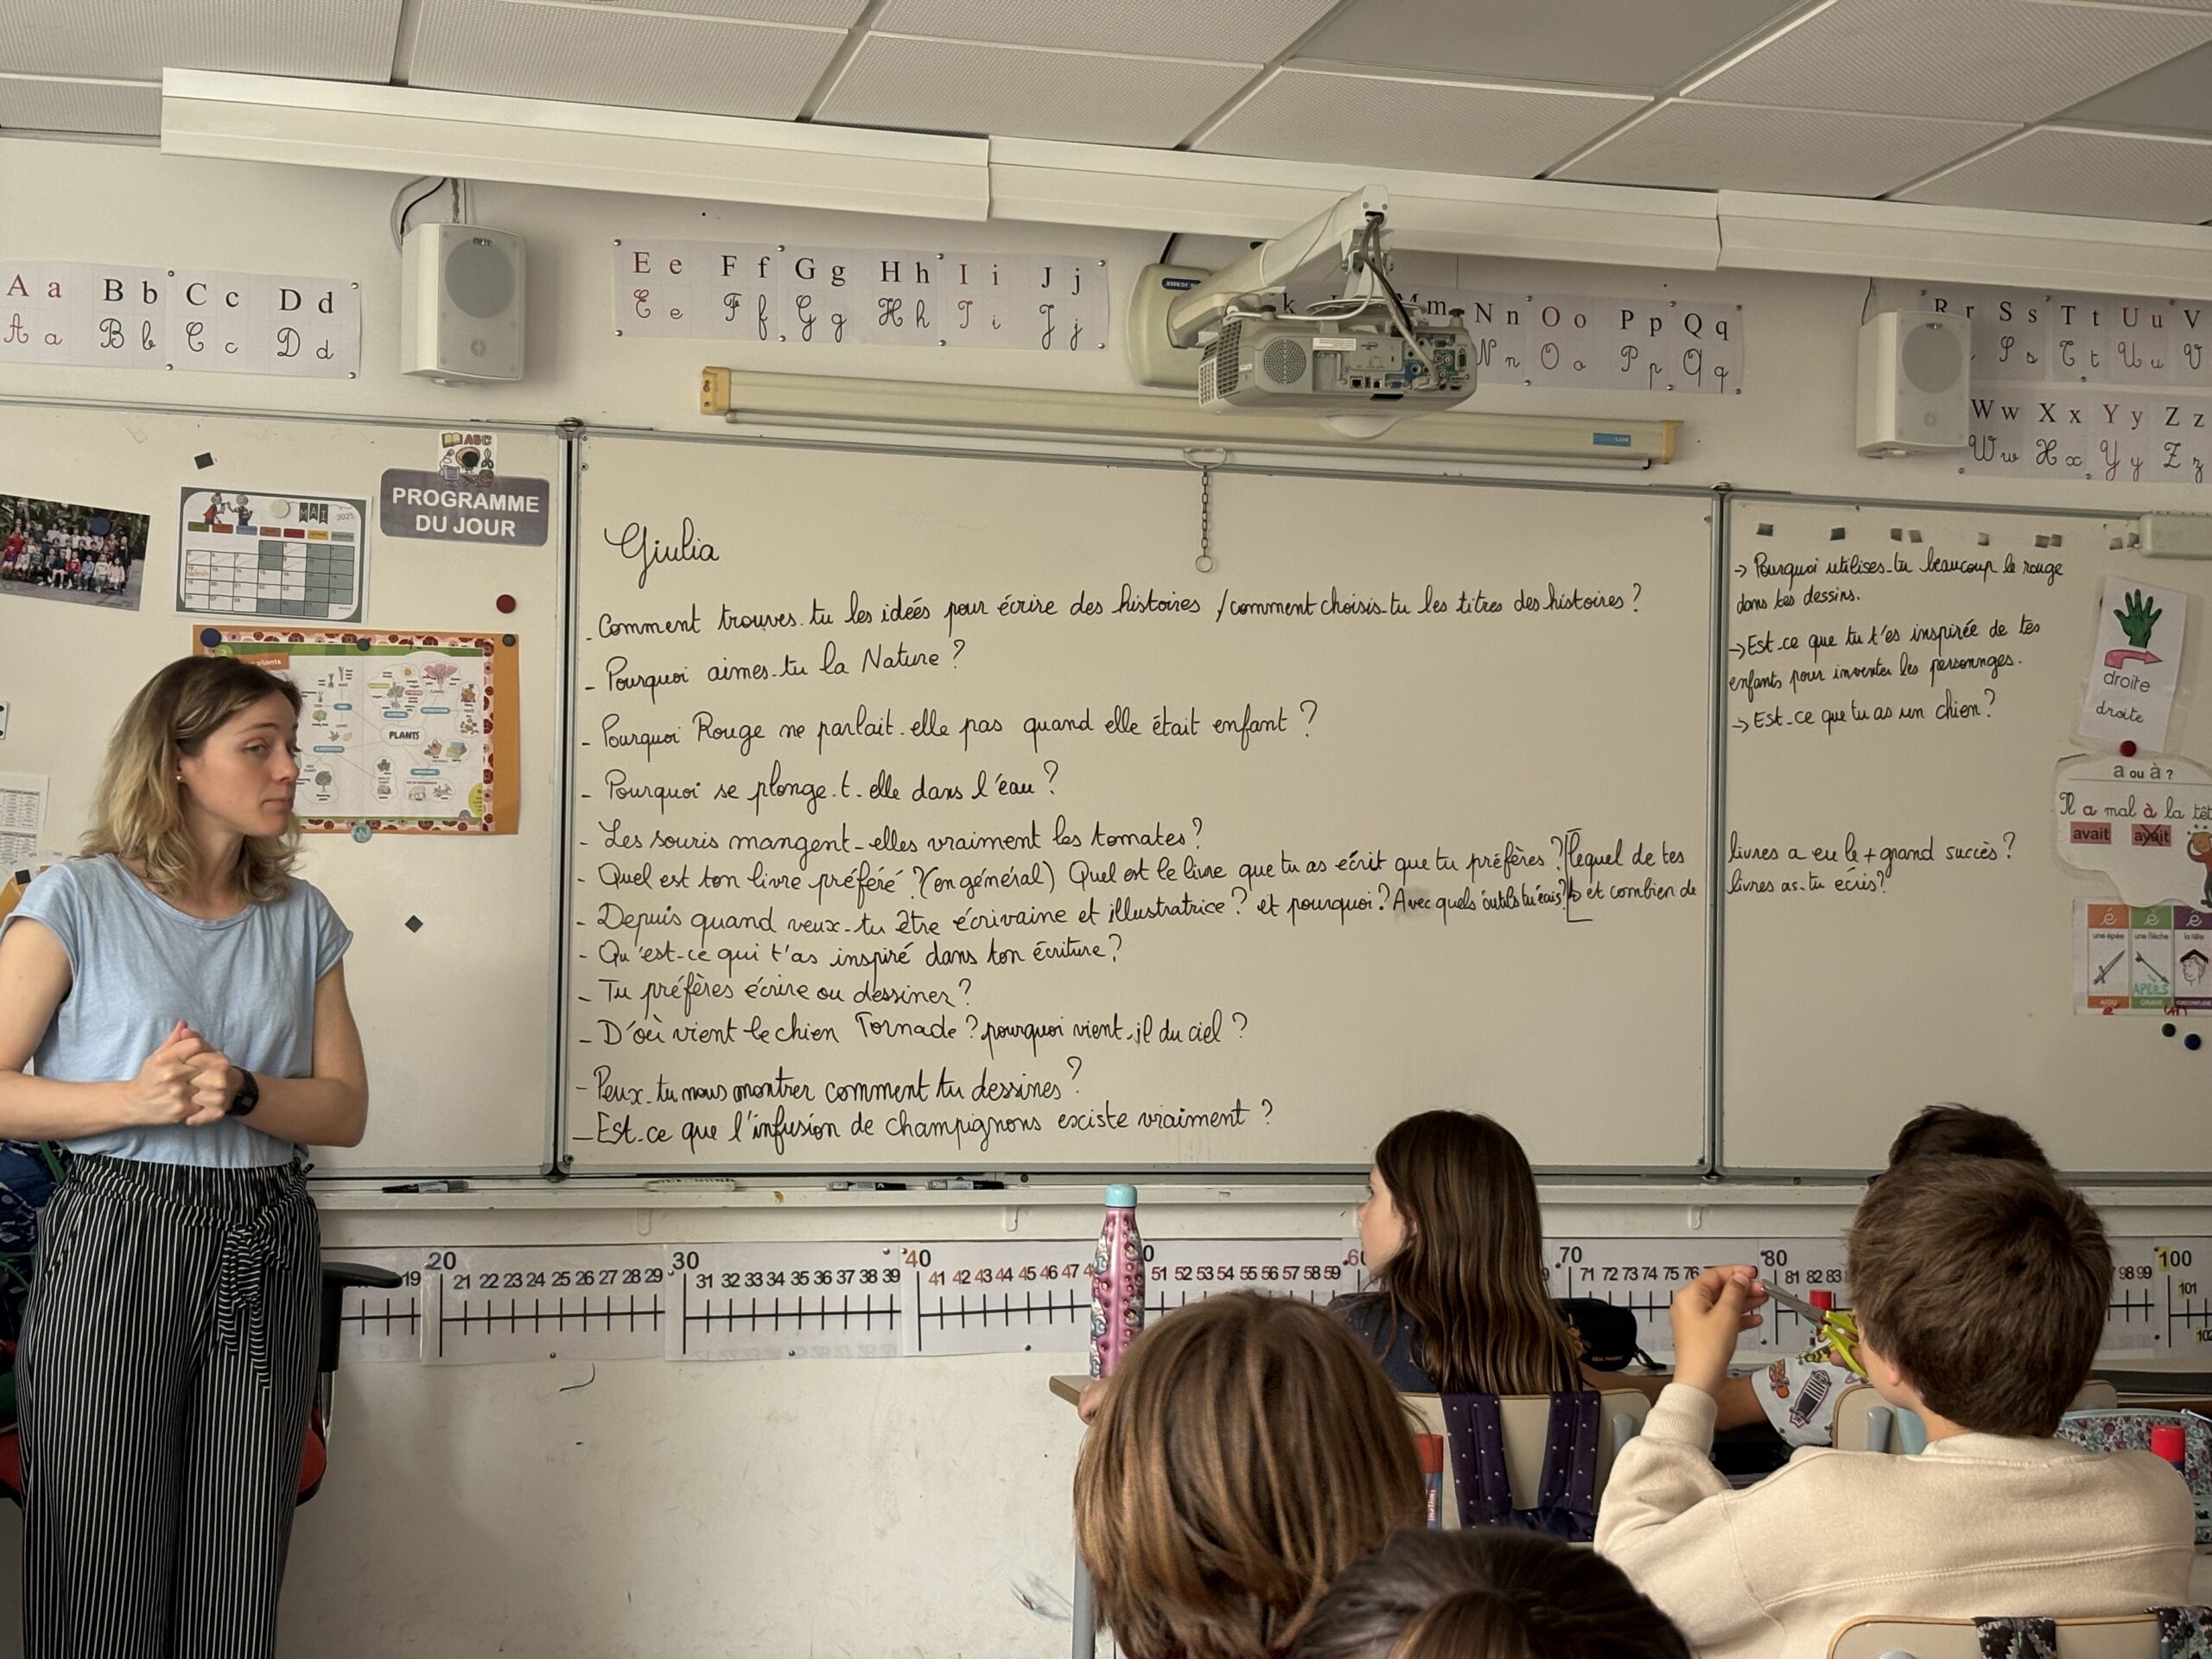 A a B b C c D d
A a B b C c D d
E e F f G g H h I i J j
E e F f G g H h I i J j
k
M m N n O o P p Q q
N n O o P p Q q
R r S s T t U u V
S s T t U u V
W w X x Y y Z z
W w X x Y y Z z
ABC
PROGRAMME
DU JOUR
MAI 2025
plants
PLANTS
Giulia
- Comment trouves-tu les idées pour écrire des histoires / comment choisis-tu les titres des histoires ?
- Pourquoi aimes-tu la Nature ?
- Pourquoi Rouge ne parlait-elle pas quand elle était enfant ?
- Pourquoi se plonge-t-elle dans l'eau ?
- Les souris mangent-elles vraiment les tomates ?
- Quel est ton livre préféré ? (en général) Quel est le livre que tu as écrit que tu préfères ? lequel de tes livres a eu le + grand succès ?
- Depuis quand veux-tu être écrivaine et illustratrice ? et pourquoi ? Avec quels outils tu écris ? et combien de livres as-tu écris ?
- Qu'est-ce qui t'as inspiré dans ton écriture ?
- Tu préfères écrire ou dessiner ?
- D'où vient le chien Tornade ? pourquoi vient-il du ciel ?
- Peux-tu nous montrer comment tu dessines ?
- Est-ce que l'infusion de champignons existe vraiment ?
-> Pourquoi utilises-tu beaucoup le rouge
dans tes dessins.
-> Est-ce que tu t'es inspirée de tes
enfants pour inventer les personnages.
-> Est-ce que tu as un chien ?
droite
droite
a ou à ?
Il a mal à la têt
avait avait
é è ê
une épée une flèche la tête
APRÈS
AIGU GRAVE CIRCONFLEXE
19 20 21 22 23 24 25 26 27 28 29 30 31 32 33 34 35 36 37 38 39 40 41 42 43 44 45 46 47 4 0 51 52 53 54 55 56 57 58 59 60 9 70 71 72 73 74 75 76 80 81 82 83 98 99 100 101 102